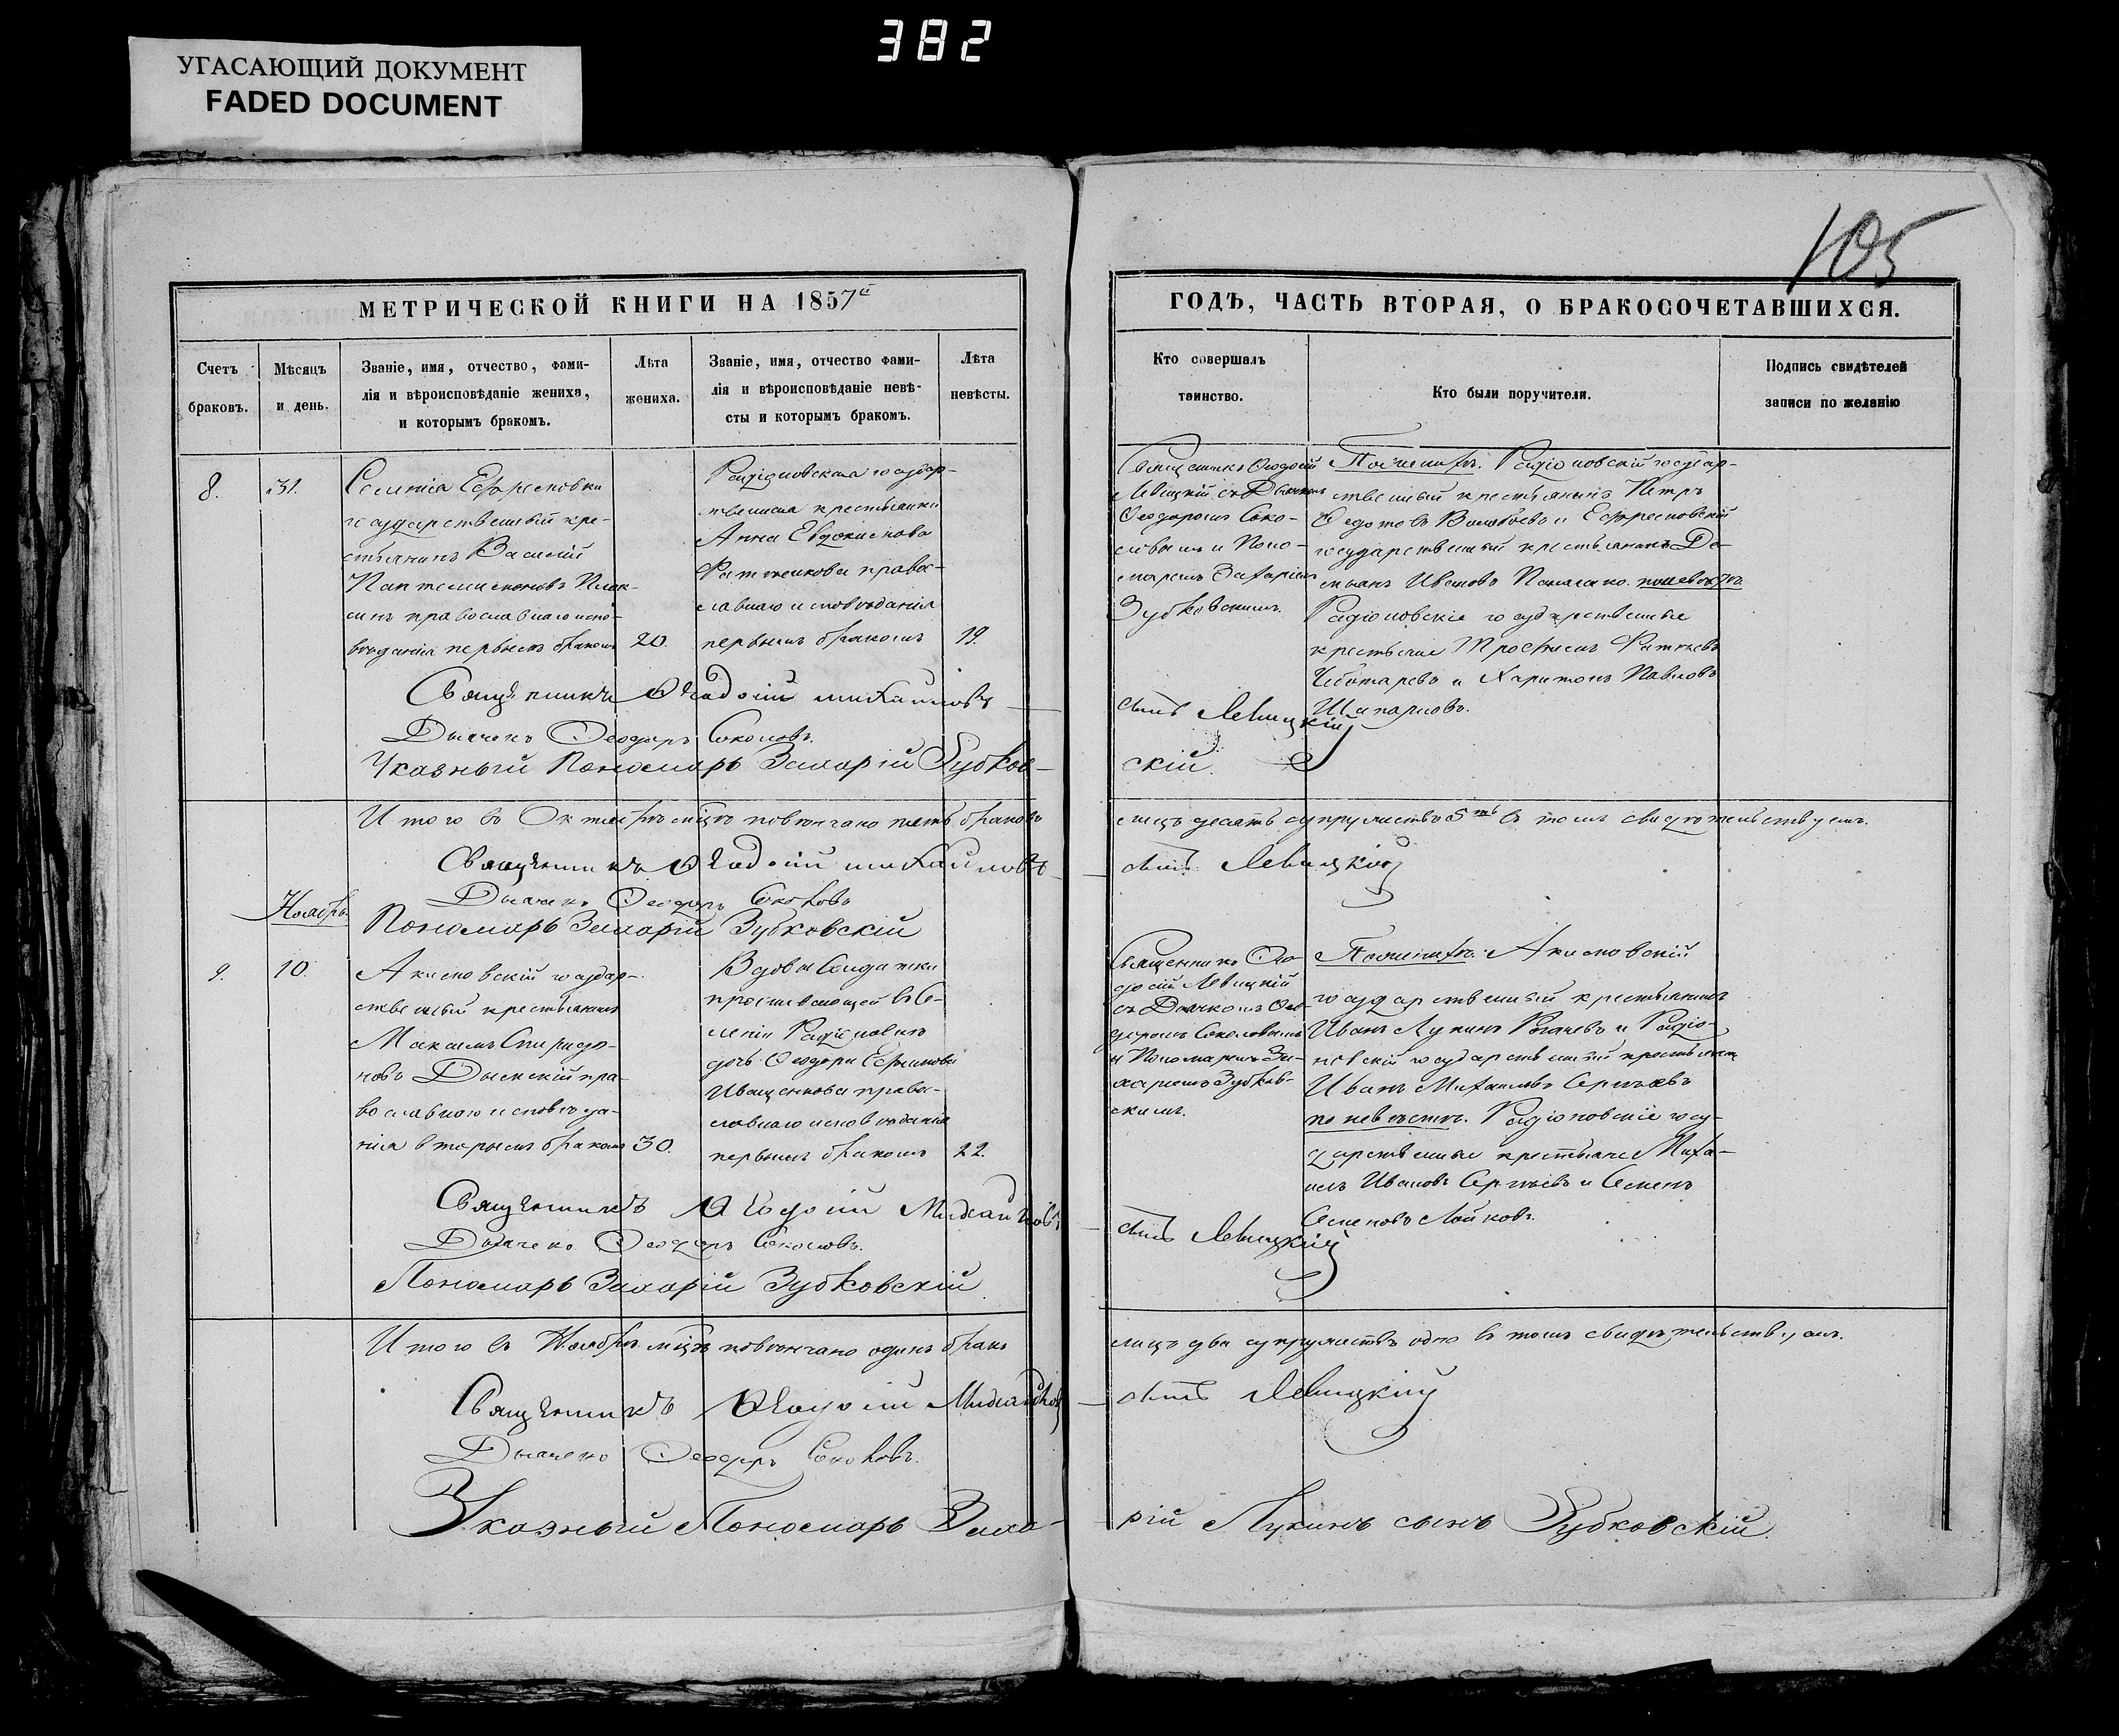 382
УГАСАЮЩИЙ ДОКУМЕНТ
FADED DOCUMENT
105
МЕТРИЧЕСКОЙ КНИГИ НА 1857й
ГОДЪ, ЧАСТЬ ВТОРАЯ, О БРАКОСОЧЕТАВШИХСЯ.
Счетъ
браковъ.
Мѣсяцъ
и день.
Званіе, имя, отчество, фами-
лія и вѣроисповѣданіе жениха,
и которымъ бракомъ.
Лѣта
жениха.
Званіе, имя, отчество фами-
лія и вѣроисповѣданіе невѣ-
сты и которымъ бракомъ.
Лѣта
невѣсты.
Кто совершалъ
таинство.
Кто были поручители.
Подпись свидѣтелей
записи по желанію
8.
31.
Селенія Ефремовки
государственный кре-
стьянинъ Василій
Пантелимоновъ
православнаго испо-
вѣданія первымъ бракомъ
20.
Радіоновская государ-
ственная крестьянка
Анна Евдокимова
право-
славнаго исповѣданія
первымъ бракомъ
19.
Священникъ Ѳеодосій
Левицкій съ Дьячкомъ
Ѳеодоромъ Соко-
ловымъ и Поно-
маремъ Захаріемъ
Зубковскимъ.
Радіоновскій государ-
ственный крестьянинъ Петръ
Ѳедотовъ и Ефремовскій
государственный крестьянинъ Де-
мьянъ Ивановъ по невѣстѣ
Радіоновскіе государственные
крестьяне Трофимъ
Чеботаревъ и Харитонъ Павловъ
Шапарновъ.
Священникъ Ѳеодосій Михайловъ
сынъ Левицкій
Дьячекъ Ѳеодоръ Соколовъ.
Указный Пономарь Захарій Зубков-
скій.
Итого въ Октябрѣ мѣсяцѣ повѣнчано пять браковъ
лицъ десять супружествъ 5ть въ томъ свидѣтельствуемъ.
Священникъ Ѳеодосій Михайловъ
сынъ Левицкій
Дьячекъ Ѳеодоръ Соколовъ
Пономарь Захарій Зубковскій
Ноябрь
9.
10.
Акимовскій государ-
ственный крестьянинъ
Максимъ Спиридо-
новъ Дымскій пра-
вославнаго исповѣда-
нія вторымъ бракомъ
30.
Вдовы Солдатки
проживающей въ Се-
леніи Радіоновкѣ
дочь Ѳеодора Ефимова
Иващенкова право-
славнаго исповѣданія
первымъ бракомъ
22.
Священникъ Ѳео-
досій Левицкій
съ Дьячкомъ Ѳео-
доромъ Соколовымъ
и Пономаремъ За-
харіемъ Зубков-
скимъ.
Акимовскій
государственный крестьянинъ
Иванъ Лукинъ и Радіо-
новскій государственный крестьянинъ
Иванъ Михайловъ Сергѣевъ
по невѣстѣ. Радіоновскіе госу-
дарственные крестьяне Миха-
илъ Ивановъ Сергѣевъ и Семенъ
Семеновъ Лойковъ.
Священникъ Ѳеодосій Михайловъ
сынъ Левицкій
Дьячекъ Ѳеодоръ Соколовъ.
Пономарь Захарій Зубковскій
Итого въ Ноябрѣ мѣсяцѣ повѣнчано одинъ бракъ
лицъ два супружествъ одно въ томъ свидѣтельствуемъ.
Священникъ Ѳеодосій Михайловъ
сынъ Левицкій
Дьячекъ Ѳеодоръ Соколовъ.
Указный Пономарь Заха-
рій Лукинъ сынъ Зубковскій.